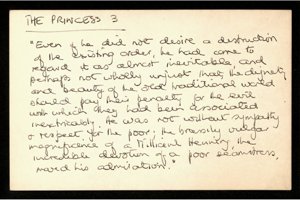 THE PRINCESS 3
"Even if he did not desire a destruction
of the existing order, he had come to
regard it as almost inevitable, and
perhaps not wholly unjust that the dignity
and beauty of the old traditional world
should pay their penalty for the evil
with which they had been associated
inextricably. He was not without sympathy
& respect for the poor; the brassily vulgar
magnificence of a Millicent Henning, the
incredible devotion of a poor seamstress,
moved his admiration."